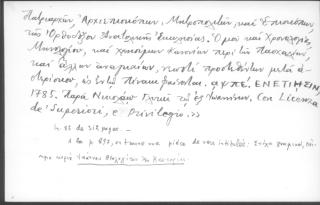 Πατριαρχῶν, Ἀρχιεπισκόπων, Μητροπολιτῶν, καὶ Ἐπισκόπων,
τῆς Ὀρθοδόξου Ἀνατολικῆς Ἐκκλησίας. Ὁμοῦ καὶ Χρονολογίας,
Μηνολογίου, καὶ χρησίμων Κανονίων περὶ τῆς Πασχαλίας,
καὶ ἄλλων ἀναγκαίων, νεωστὶ προστεθέντων μετὰ
ὡς ἐν τῷ Πίνακι φαίνεται. ΕΝΕΤΙΗΣΙΝ
1785. Παρὰ Νικολάῳ Γλυκεῖ τῷ ἐξ Ἰωαννίνων. Con Licenza
de' Superiori, e Privilegio.>>
4. de 512 pages.
A la p. on trouve une pièce de vers intitulée: Στίχοι